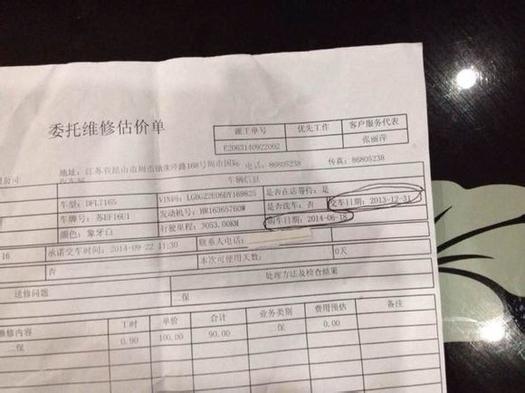 委托维修估价单
派工单号 优先工作 客户服务代表
E2063140922002 张丽萍
限公司 地址：江苏省昆山市周市镇 路168号周市国际 电话：86805238 传真：86805238
车辆信息
车型：DFL7165 是否在店等待：是
车牌号：苏EF16U1 发动机号：HR16365760W 是否洗车：否 交车日期：2013-12-31
颜色：象牙白 行驶里程：3053.00KM 购车日期：2014-06-18
16 承诺交车时间：2014-09-22 11:30 联系人电话：
否 本次可使用天数： 0天
送修问题 处理方法及检查结果
二保
维修内容 工时 单价 合计 业务类别 费用预估 备注
二保 0.90 100.00 90.00 二保 0.00